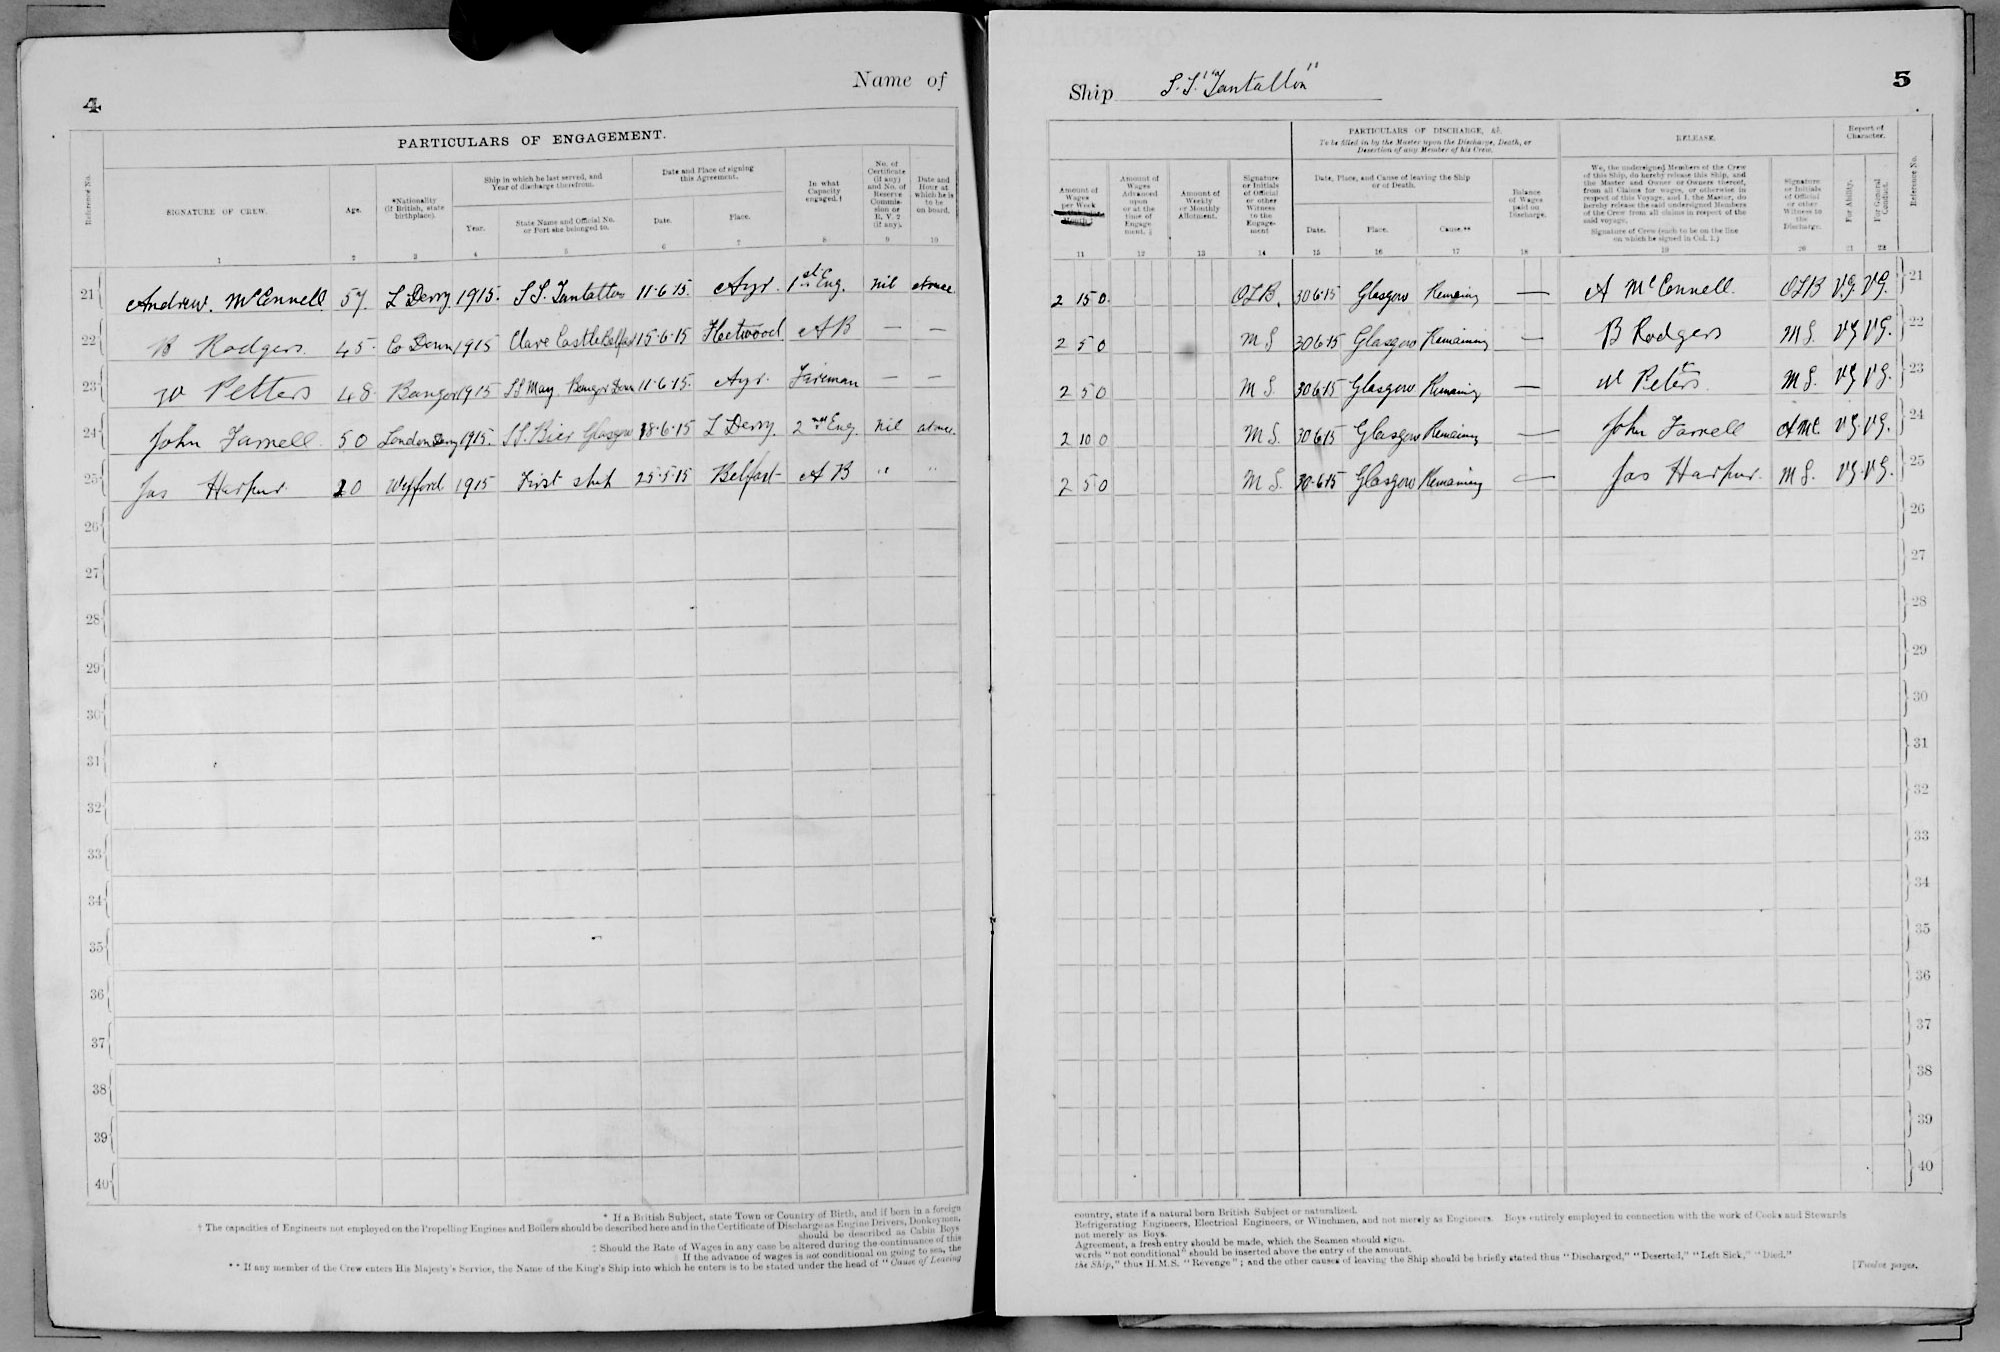 4
Name of
PARTICULARS OF ENGAGEMENT.
Reference No.
SIGNATURE OF CREW.
Age.
*Nationality (If British, state birthplace).
Ship in which he last served, and Year of discharge therefrom.
Year.
State Name and Official No. or Port she belonged to.
Date and Place of signing this Agreement.
Date.
Place.
In what Capacity engaged.†
No. of Certificate (if any) and No. of Reserve Commission or R. V. 2 (if any).
Date and Hour at which he is to be on board.
1 2 3 4 5 6 7 8 9 10
21 Andrew. McConnell 57. L Derry 1915. S S. Tantallon 11·6·15. Ayr. 1st Eng. nil at once
22 B Rodgers. 45. Co Down 1915 Clare Castle Belfast 15·6·15 Fleetwood A B — —
23 W Petters 48. Bangor 1915 SS May Bangor Down 11·6·15. Ayr. Fireman — —
24 John Farrell. 50 Londonderry 1915. S S. Glasgow 18·6·15 L Derry. 2nd Eng. nil at once.
25 Jas Harpur. 20 Wexford 1915 First ship 25·5·15 Belfast A B " "
26
27
28
29
30
31
32
33
34
35
36
37
38
39
40
* If a British Subject, state Town or Country of Birth, and if born in a foreign
† The capacities of Engineers not employed on the Propelling Engines and Boilers should be described here and in the Certificate of Discharge as Engine Drivers, Donkeymen,
should be described as Cabin Boys
‡ Should the Rate of Wages in any case be altered during the continuance of this
If the advance of wages is not conditional on going to sea, the
** If any member of the Crew enters His Majesty's Service, the Name of the King's Ship into which he enters is to be stated under the head of "Cause of Leaving
Ship S.S. "Tantallon"
5
Amount of Wages per Week
Month.‡
Amount of Wages Advanced upon or at the time of Engagement.
Amount of Weekly or Monthly Allotment.
Signature or Initials of Official or other Witness to the Engagement
PARTICULARS OF DISCHARGE, &c.
To be filled in by the Master upon the Discharge, Death, or Desertion of any Member of his Crew.
Date, Place, and Cause of leaving the Ship or of Death.
Date.
Place.
Cause.**
Balance of Wages paid on Discharge.
RELEASE.
We, the undersigned Members of the Crew of this Ship, do hereby release this Ship, and the Master and Owner or Owners thereof, from all Claims for wages, or otherwise in respect of this Voyage, and I, the Master, do hereby release the said undersigned Members of the Crew from all claims in respect of the said voyage.
Signature of Crew (each to be on the line on which he signed in Col. 1.)
Signature or Initials of Official or other Witness to the Discharge.
Report of Character.
For Ability.
For General Conduct.
Reference No.
11 12 13 14 15 16 17 18 19 20 21 22
2 15 0. OLB. 30 6·15 Glasgow Remaining — A McConnell. OLB V.G. V.G. 21
2 5 0 M S 30·6·15 Glasgow Remaining — B Rodgers M S. VG VG. 22
2 5 0 M S. 30·6·15 Glasgow Remaining — W Peters. M S. VG VG. 23
2 10 0 M S. 30·6·15 Glasgow Remaining — John Farrell A Mc. VG. VG. 24
2 5 0 M S. 30·6·15 Glasgow Remaining — Jas Harpur. M S. VG VG. 25
26
27
28
29
30
31
32
33
34
35
36
37
38
39
40
country, state if a natural born British Subject or naturalised.
Refrigerating Engineers, Electrical Engineers, or Winchmen, and not merely as Engineers. Boys entirely employed in connection with the work of Cooks and Stewards
not merely as Boys.
Agreement, a fresh entry should be made, which the Seamen should sign.
words "not conditional" should be inserted above the entry of the amount.
the Ship," thus H.M.S. "Revenge"; and the other causes of leaving the Ship should be briefly stated thus "Discharged," "Deserted," "Left Sick," "Died."
[Twelve pages.